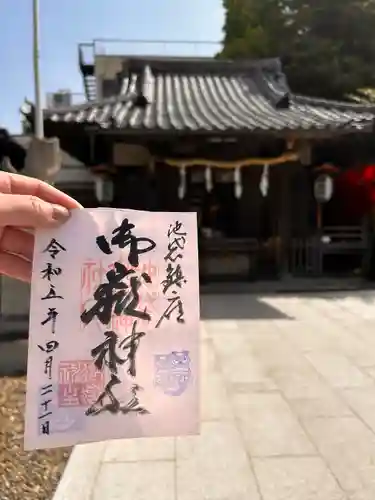 池袋鎮座
御嶽神社
令和五年四月二十一日